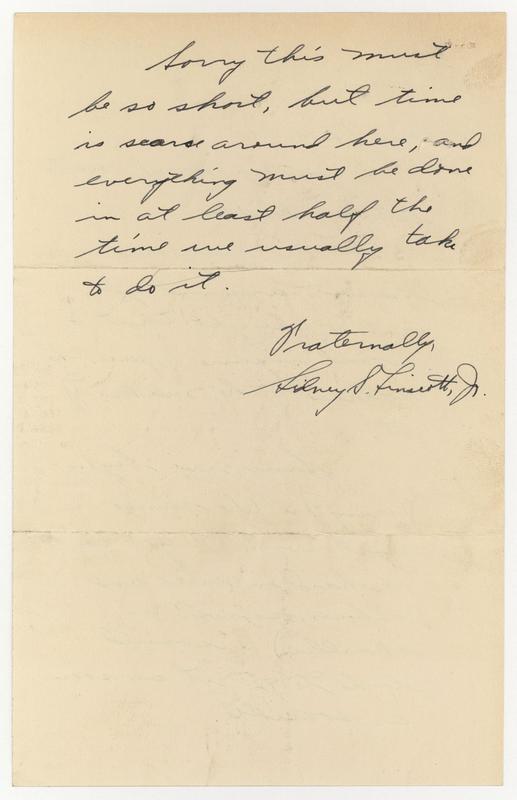 Sorry this must
be so short, but time
is scarse around here, and
everything must be done
in at least half the
time we usually take
to do it.
Fraternally,
Sidney S. Linscott, Jr.